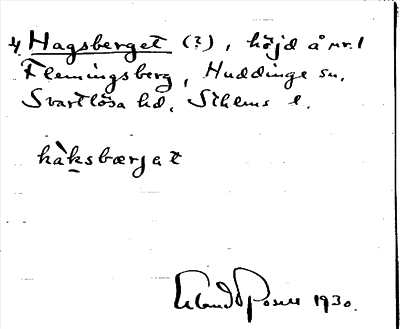 4. Hagsberget (?), höjd å nr. 1
Flemingsberg, Huddinge sn.
Svartlösa hd. Sthlms l.
hàksbærjat
Erland Rosell 1930.